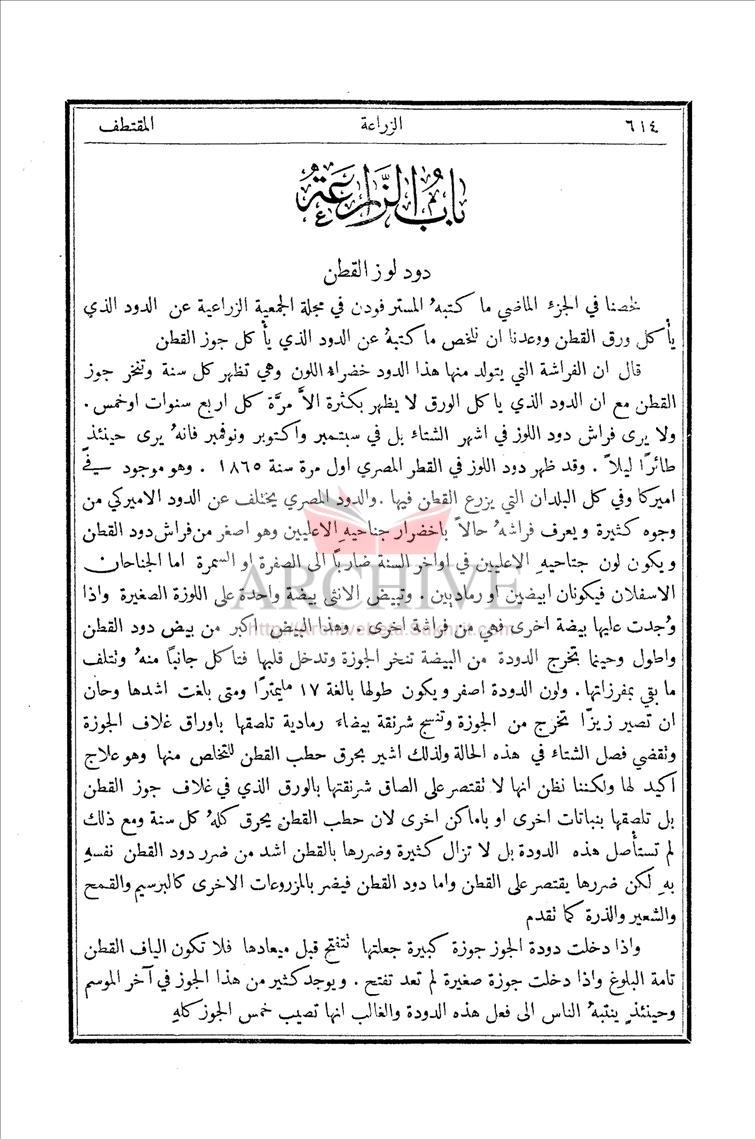 ٦١٤ الزراعة المقتطف
باب الزراعة
دود لوز القطن
لخصنا في الجزء الماضي ما كتبهُ المستر فودن في مجلة الجمعية الزراعية عن الدود الذي
يأكل ورق القطن ووعدنا ان نلخص ما كتبهُ عن الدود الذي يأكل جوز القطن
قال ان الفراشة التي يتولد منها هذا الدود خضراء اللون وهي تظهر كل سنة وتنخر جوز
القطن مع ان الدود الذي ياكل الورق لا يظهر بكثرة الاَّ مرَّة كل اربع سنوات اوخمس .
ولا يرى فراش دود اللوز في اشهر الشتاء بل في سبتمبر واكتوبر ونوفمبر فانهُ يرى حينئذ
طائرًا ليلاً . وقد ظهر دود اللوز في القطر المصري اول مرة سنة ١٨٦٥ . وهو موجود في
اميركا وفي كل البلدان التي يزرع القطن فيها . والدود المصري يختلف عن الدود الاميركي من
وجوه كثيرة ويعرف فراشهُ حالاً باخضرار جناحيهِ الاعليين وهو اصغر من فراش دود القطن
ويكون لون جناحيهِ الاعليين في اواخر السنة ضاربًا الى الصفرة او السمرة اما الجناحان
الاسفلان فيكونان ابيضين او رماديين . وتبيض الانثى بيضة واحدة على اللوزة الصغيرة واذا
وُجدت عليها بيضة اخرى فهي من فراشة اخرى . وهذا البيض اكبر من بيض دود القطن
واطول وحينما تخرج الدودة من البيضة تنخر الجوزة وتدخل قلبها فتاكل جانبًا منهُ وتتلف
ما بقي بمفرزاتها . ولون الدودة اصفر ويكون طولها بالغة ١٧ مليمترًا ومتى بلغت اشدها وحان
ان تصير زيزًا تخرج من الجوزة وتنسج شرنقة بيضاء رمادية تلصقها باوراق غلاف الجوزة
وتقضي فصل الشتاء في هذه الحالة ولذلك اشير بحرق حطب القطن للتخلص منها وهو علاج
اكيد لها ولكننا نظن انها لا تقتصر على الصاق شرنقتها بالورق الذي في غلاف جوز القطن
بل تلصقها بنباتات اخرى او باماكن اخرى لان حطب القطن يحرق كلهُ كل سنة ومع ذلك
لم تستأصل هذه الدودة بل لا تزال كثيرة وضررها بالقطن اشد من ضرر دود القطن نفسهِ
بهِ لكن ضررها يقتصر على القطن واما دود القطن فيضر بالمزروعات الاخرى كالبرسيم والقمح
والشعير والذرة كما تقدم
واذا دخلت دودة الجوز جوزة كبيرة جعلتها تتفتح قبل ميعادها فلا تكون الياف القطن
تامة البلوغ واذا دخلت جوزة صغيرة لم تعد تفتح . ويوجد كثير من هذا الجوز في آخر الموسم
وحينئذٍ ينتبهُ الناس الى فعل هذه الدودة والغالب انها تصيب خمس الجوز كلهِ
ARCHIVE